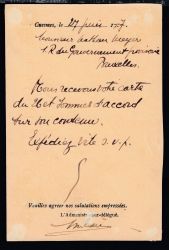 Cuesmes, le 27 juin 1917.
Monsieur
4 R du Gouvernement provisoire
Bruxelles.
Nous recevons votre carte
du et sommes d'accord
sur son contenu.
Expédiez vite s.v.p.
Veuillez agréer nos salutations empressées.
L'Administrateur-délégué,